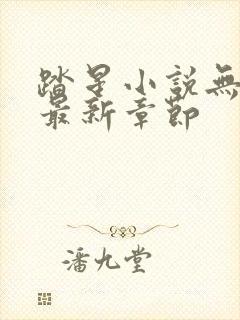 踏星小說無
最新章節
潘九堂